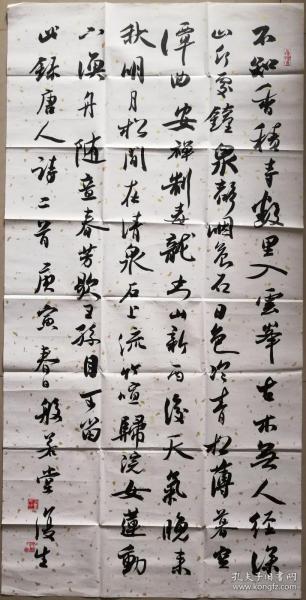 不知香積寺數里入雲峰古木無人徑深
山何處鐘泉聲咽危石日色冷青松薄暮空
潭曲安禪制毒龍空山新雨後天氣晚來
秋明月松間照清泉石上流竹喧歸浣女蓮動
下漁舟隨意春芳歇王孫自可留
此錄唐人詩二首庚寅春日般若堂
孔夫子旧书网